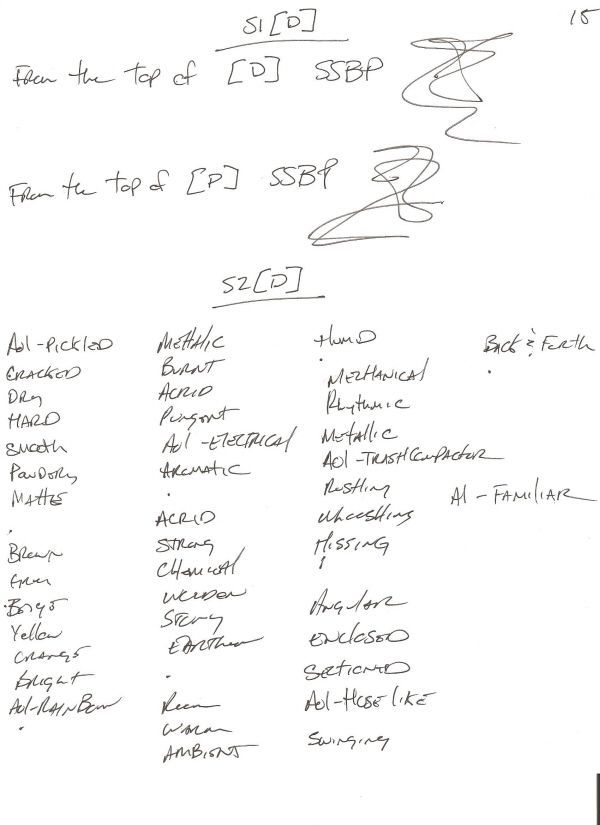 15
S1 [D]
From the top of [D] SSBP
From the top of [D] SSBP
S2 [D]
Aol-Pickled
Cracked
Dry
Hard
Smooth
Powdery
Matte
.
Brown
Green
Beige
Yellow
Orange
Bright
Aol-Rainbow
.
Metallic
Burnt
Acrid
Pungent
Aol-Electrical
Aromatic
.
Acrid
Strong
Chemical
Wooden
Earthen
.
Room
Warm
Ambient
Humid
.
Mechanical
Rhythmic
Metallic
Aol-Trash Compactor
Rustling
Whooshing
Hissing
Angular
Enclosed
Sectioned
Aol-Hose like
Swinging
Back & Forth
.
AI-Familiar